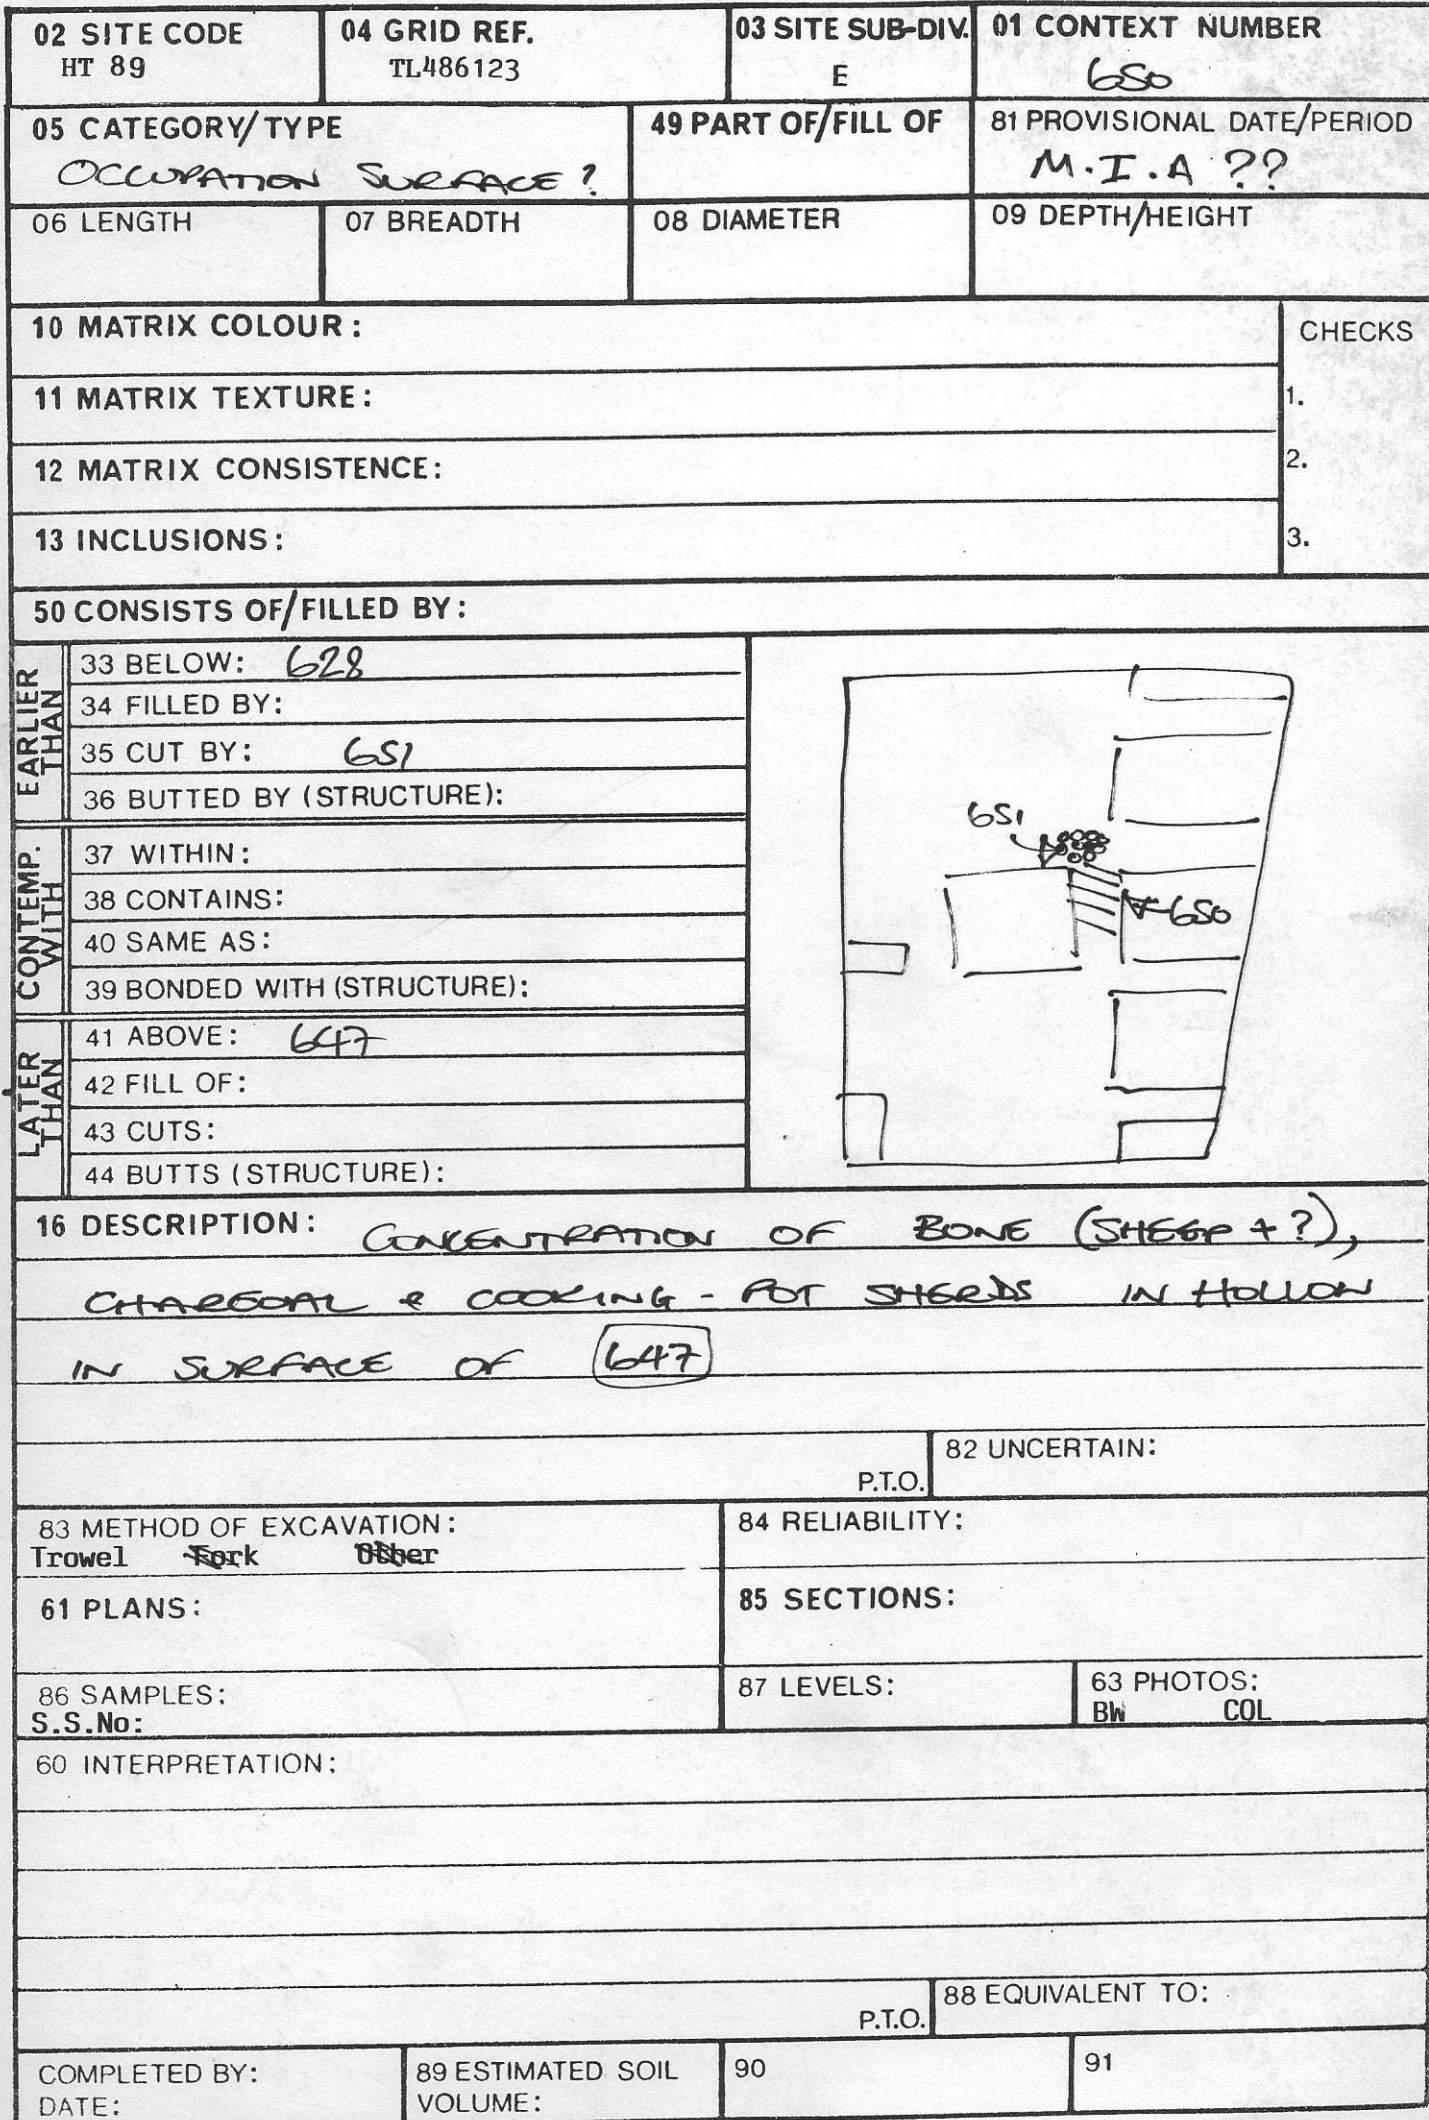 02 SITE CODE 04 GRID REF. 03 SITE SUB-DIV. 01 CONTEXT NUMBER
HT 89 TL486123 E 650
05 CATEGORY/TYPE 49 PART OF/FILL OF 81 PROVISIONAL DATE/PERIOD
OCCUPATION SURFACE? M.I.A ??
06 LENGTH 07 BREADTH 08 DIAMETER 09 DEPTH/HEIGHT
10 MATRIX COLOUR: CHECKS
11 MATRIX TEXTURE: 1.
12 MATRIX CONSISTENCE: 2.
13 INCLUSIONS: 3.
50 CONSISTS OF/FILLED BY:
EARLIER THAN
33 BELOW: 628
34 FILLED BY:
35 CUT BY: 651
36 BUTTED BY (STRUCTURE):
CONTEMP. WITH
37 WITHIN:
38 CONTAINS:
40 SAME AS:
39 BONDED WITH (STRUCTURE):
LATER THAN
41 ABOVE: 647
42 FILL OF:
43 CUTS:
44 BUTTS (STRUCTURE):
651
650
16 DESCRIPTION: CONCENTRATION OF BONE (SHEEP + ?),
CHARCOAL & COOKING-POT SHERDS IN HOLLOW
IN SURFACE OF 647
82 UNCERTAIN:
P.T.O.
83 METHOD OF EXCAVATION: 84 RELIABILITY:
Trowel Fork Other
61 PLANS: 85 SECTIONS:
86 SAMPLES: 87 LEVELS: 63 PHOTOS:
S.S.No: BW COL
60 INTERPRETATION:
88 EQUIVALENT TO:
P.T.O.
COMPLETED BY: 89 ESTIMATED SOIL 90 91
DATE: VOLUME: